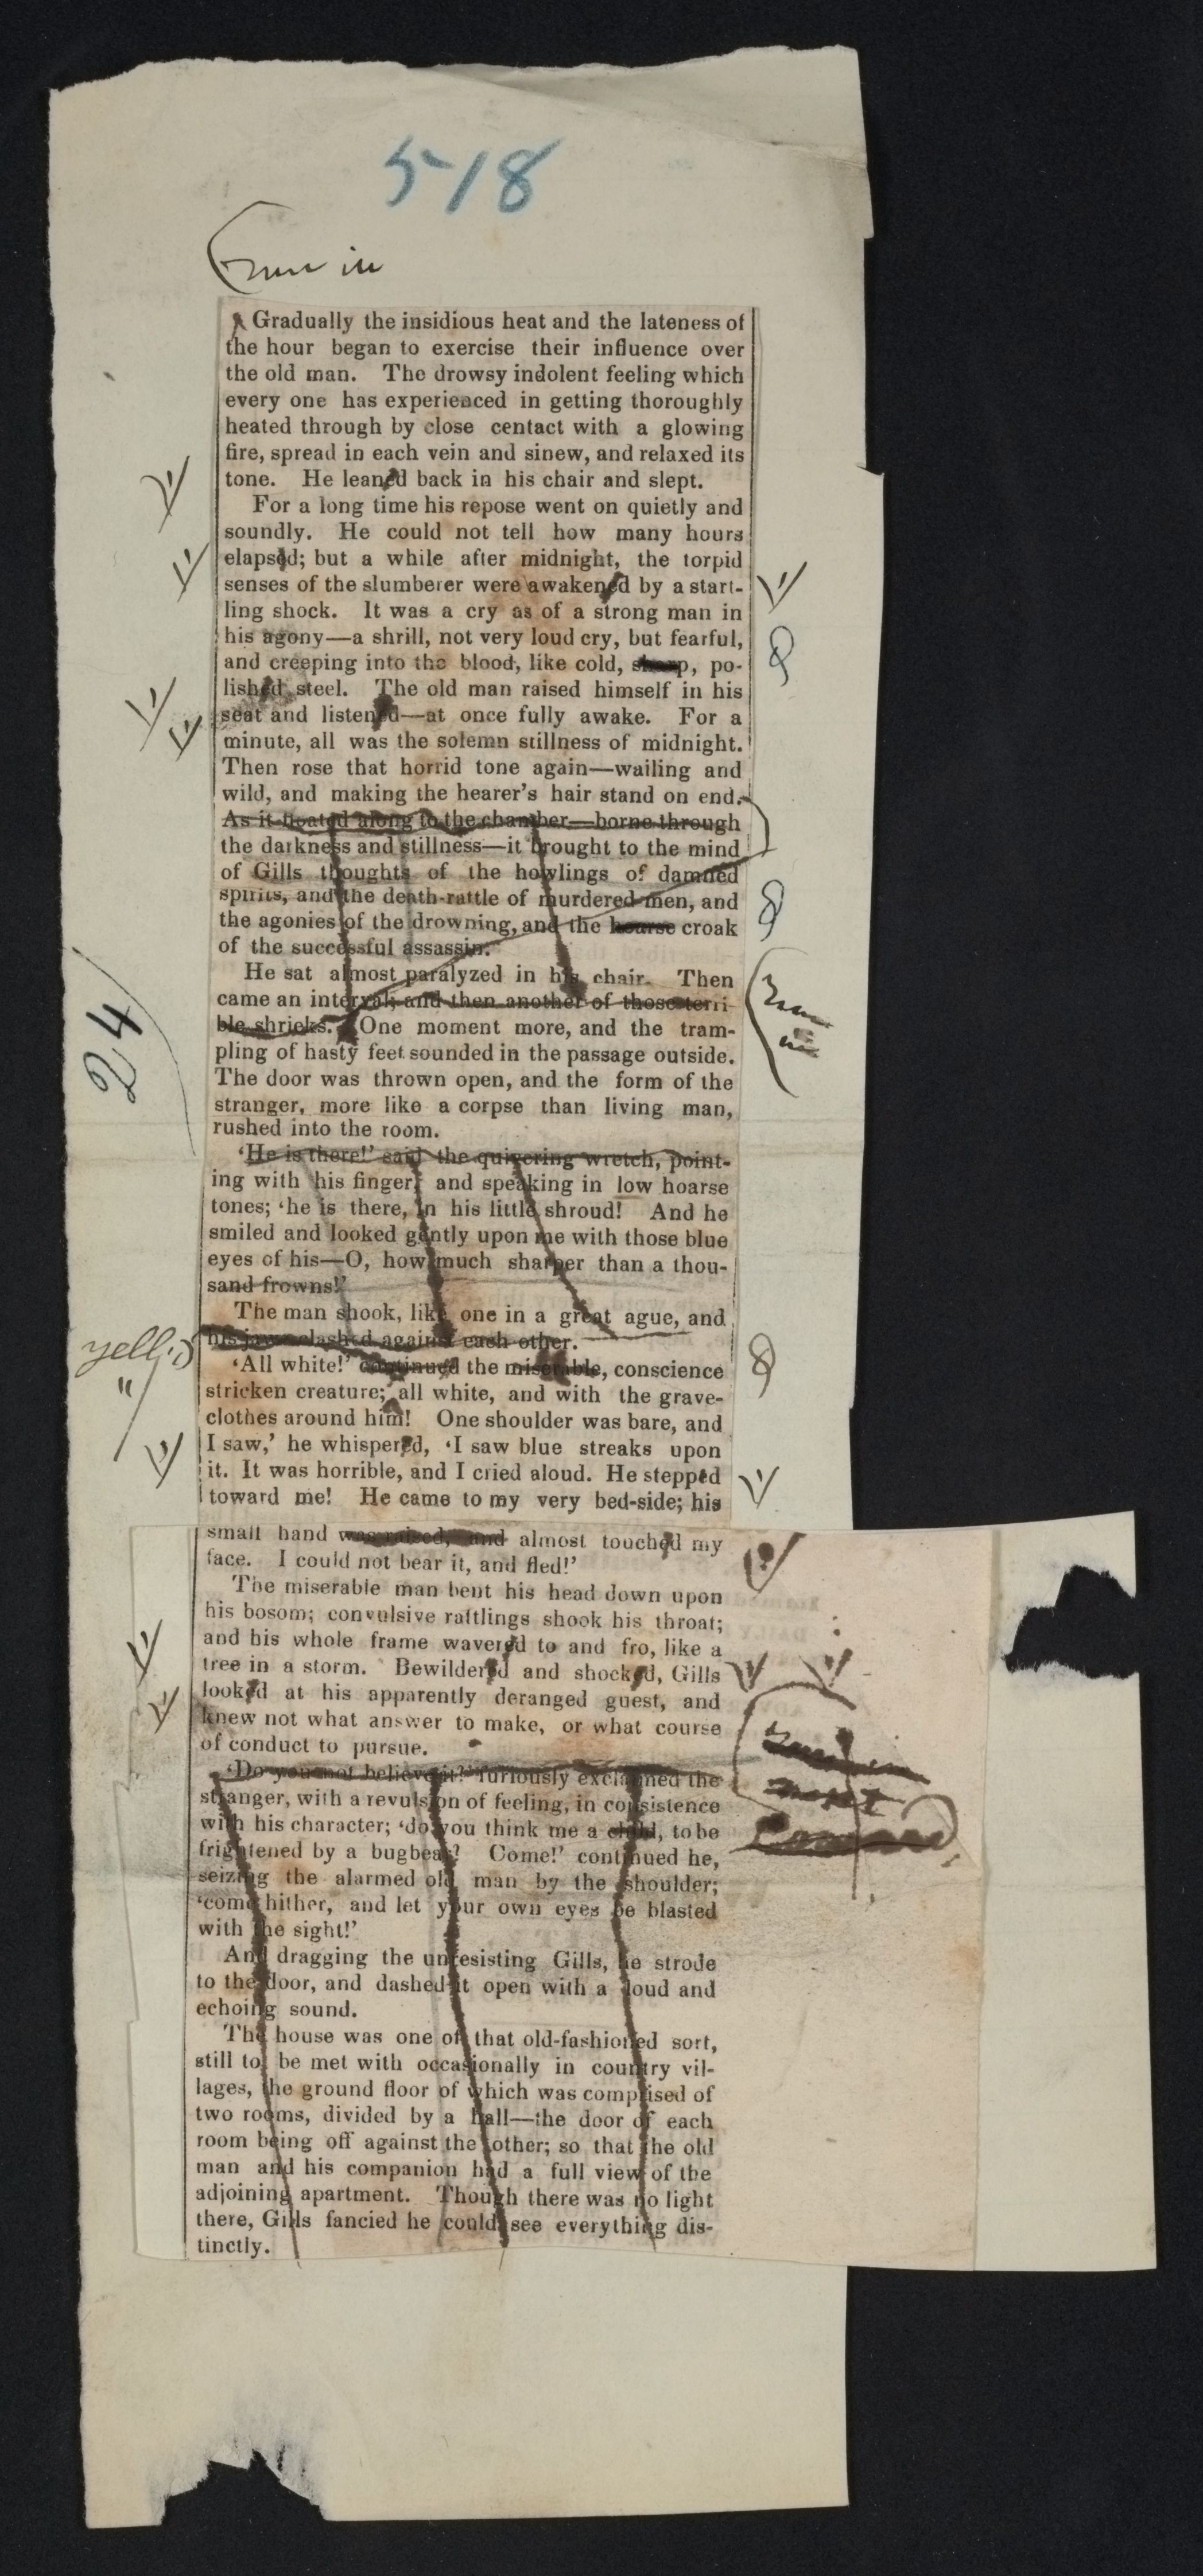 518
run in
Gradually the insidious heat and the lateness of
the hour began to exercise their influence over
the old man. The drowsy indolent feeling which
every one has experienced in getting thoroughly
heated through by close centact with a glowing
fire, spread in each vein and sinew, and relaxed its
tone. He leaned back in his chair and slept.
For a long time his repose went on quietly and
soundly. He could not tell how many hours
elapsed; but a while after midnight, the torpid
senses of the slumberer were awakened by a start-
ling shock. It was a cry as of a strong man in
his agony—a shrill, not very loud cry, but fearful,
and creeping into the blood, like cold, sharp, po-
lished steel. The old man raised himself in his
seat and listened—at once fully awake. For a
minute, all was the solemn stillness of midnight.
Then rose that horrid tone again—wailing and
wild, and making the hearer's hair stand on end.
As it floated along to the chamber—borne through
the darkness and stillness—it brought to the mind
of Gills thoughts of the howlings of damned
spirits, and the death-rattle of murdered men, and
the agonies of the drowning, and the hoarse croak
of the successful assassin.
He sat almost paralyzed in his chair. Then
came an interval; and then another of those terri-
run
in
ble shrieks. One moment more, and the tram-
24
pling of hasty feet sounded in the passage outside.
The door was thrown open, and the form of the
stranger, more like a corpse than living man,
rushed into the room.
'He is there!' said the quivering wretch, point-
ing with his finger, and speaking in low hoarse
tones; 'he is there, in his little shroud! And he
smiled and looked gently upon me with those blue
eyes of his—O, how much sharper than a thou-
sand frowns!'
The man shook, like one in a great ague, and
his jaws clashed against each other.
yell'd
"/
'All white!' continued the miserable, conscience
stricken creature; all white, and with the grave-
clothes around him! One shoulder was bare, and
I saw,' he whispered, 'I saw blue streaks upon
it. It was horrible, and I cried aloud. He stepped
toward me! He came to my very bed-side; his
small hand was raised, and almost touched my
face. I could not bear it, and fled!'
The miserable man bent his head down upon
his bosom; convulsive rattlings shook his throat;
and his whole frame wavered to and fro, like a
tree in a storm. Bewildered and shocked, Gills
looked at his apparently deranged guest, and
knew not what answer to make, or what course
of conduct to pursue.
'Do you not believe it?' furiously exclaimed the
stranger, with a revulsion of feeling, in consistence
with his character; 'do you think me a child, to be
frightened by a bugbear? Come!' continued he,
seizing the alarmed old man by the shoulder;
'come hither, and let your own eyes be blasted
with the sight!'
And dragging the unresisting Gills, he strode
to the door, and dashed it open with a loud and
echoing sound.
The house was one of that old-fashioned sort,
still to be met with occasionally in country vil-
lages, the ground floor of which was comprised of
two rooms, divided by a hall—the door of each
room being off against the other; so that the old
man and his companion had a full view of the
adjoining apartment. Though there was no light
there, Gills fancied he could see everything dis-
tinctly.